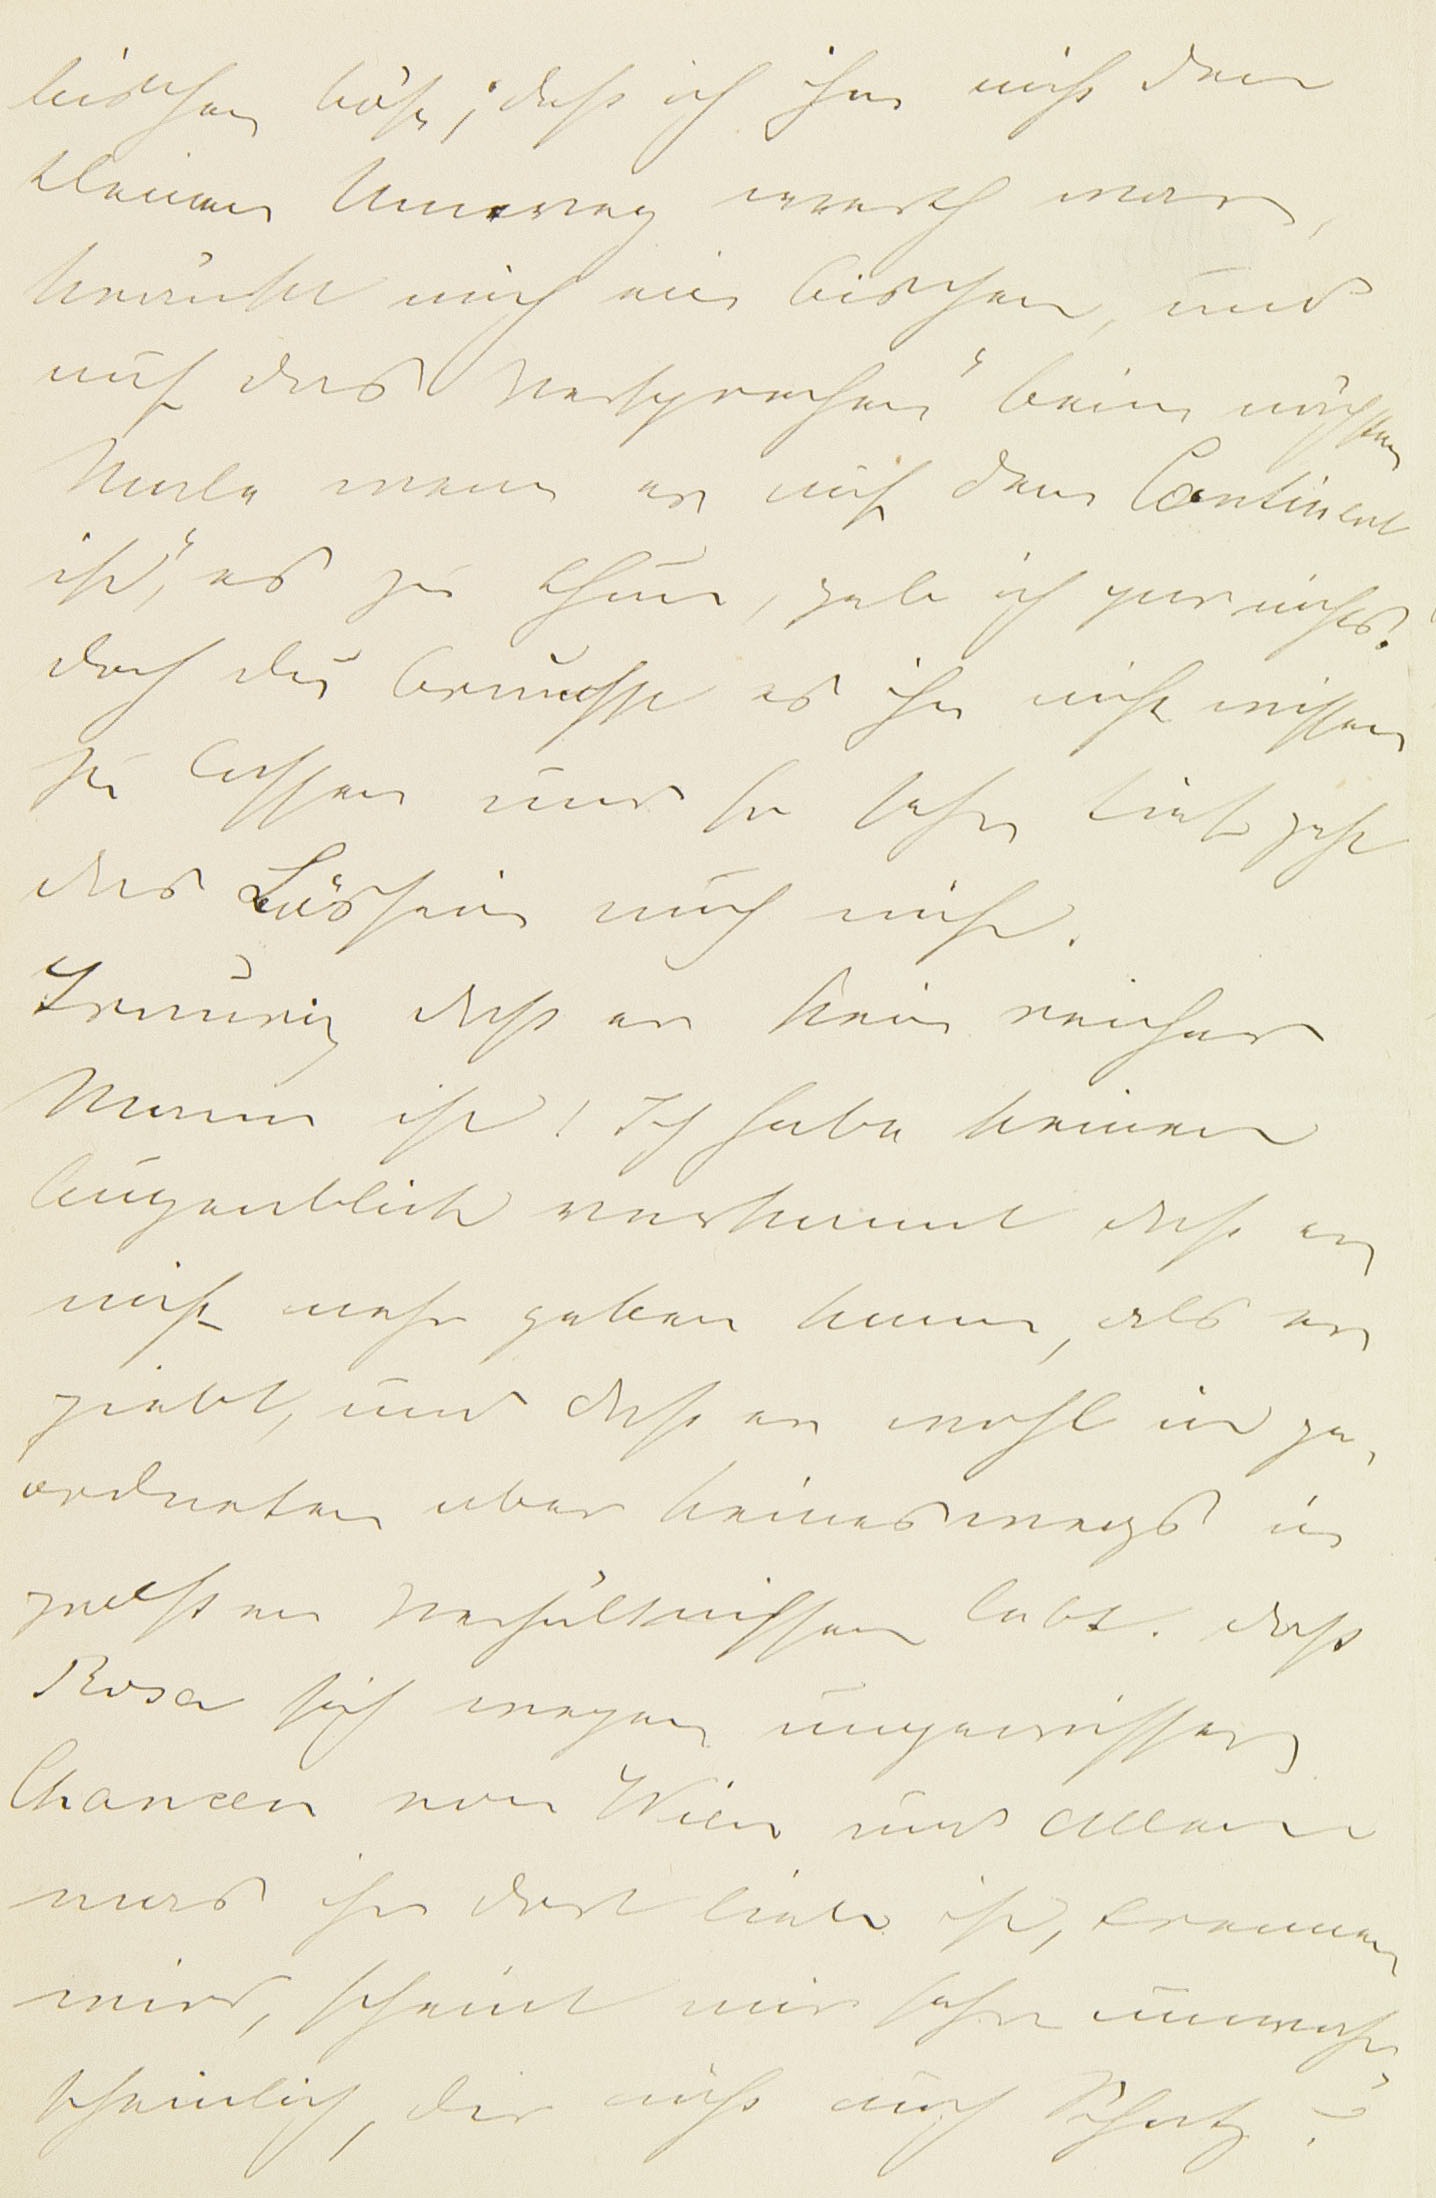 bischen böse; daß ich ihm nicht den
kleinen Umweg werth war,
kränkt mich ein bischen, und
auf das Versprechen "beim nächsten
Male wenn er auf dem Continent
ist", es zu thun, gebe ich gar nichts.
doch du brauchst es ihn nicht wissen
zu lassen und so sehr tief geht
das Bössein auch nicht.
Traurig daß er kein reicher
Mann ist! Ich habe keinen
Augenblick verkannt daß er
nicht mehr geben kann, als er
giebt, und daß er wohl in ge-
ordneten aber keineswegs in
großen Verhältnissen lebt. daß
Rosa sich wegen ungewisser
Chancen von Wien und Allem
was ihr dort lieb ist, trennen
wird, scheint mir sehr unwahr-
scheinlich, dir nicht auch Schatz?